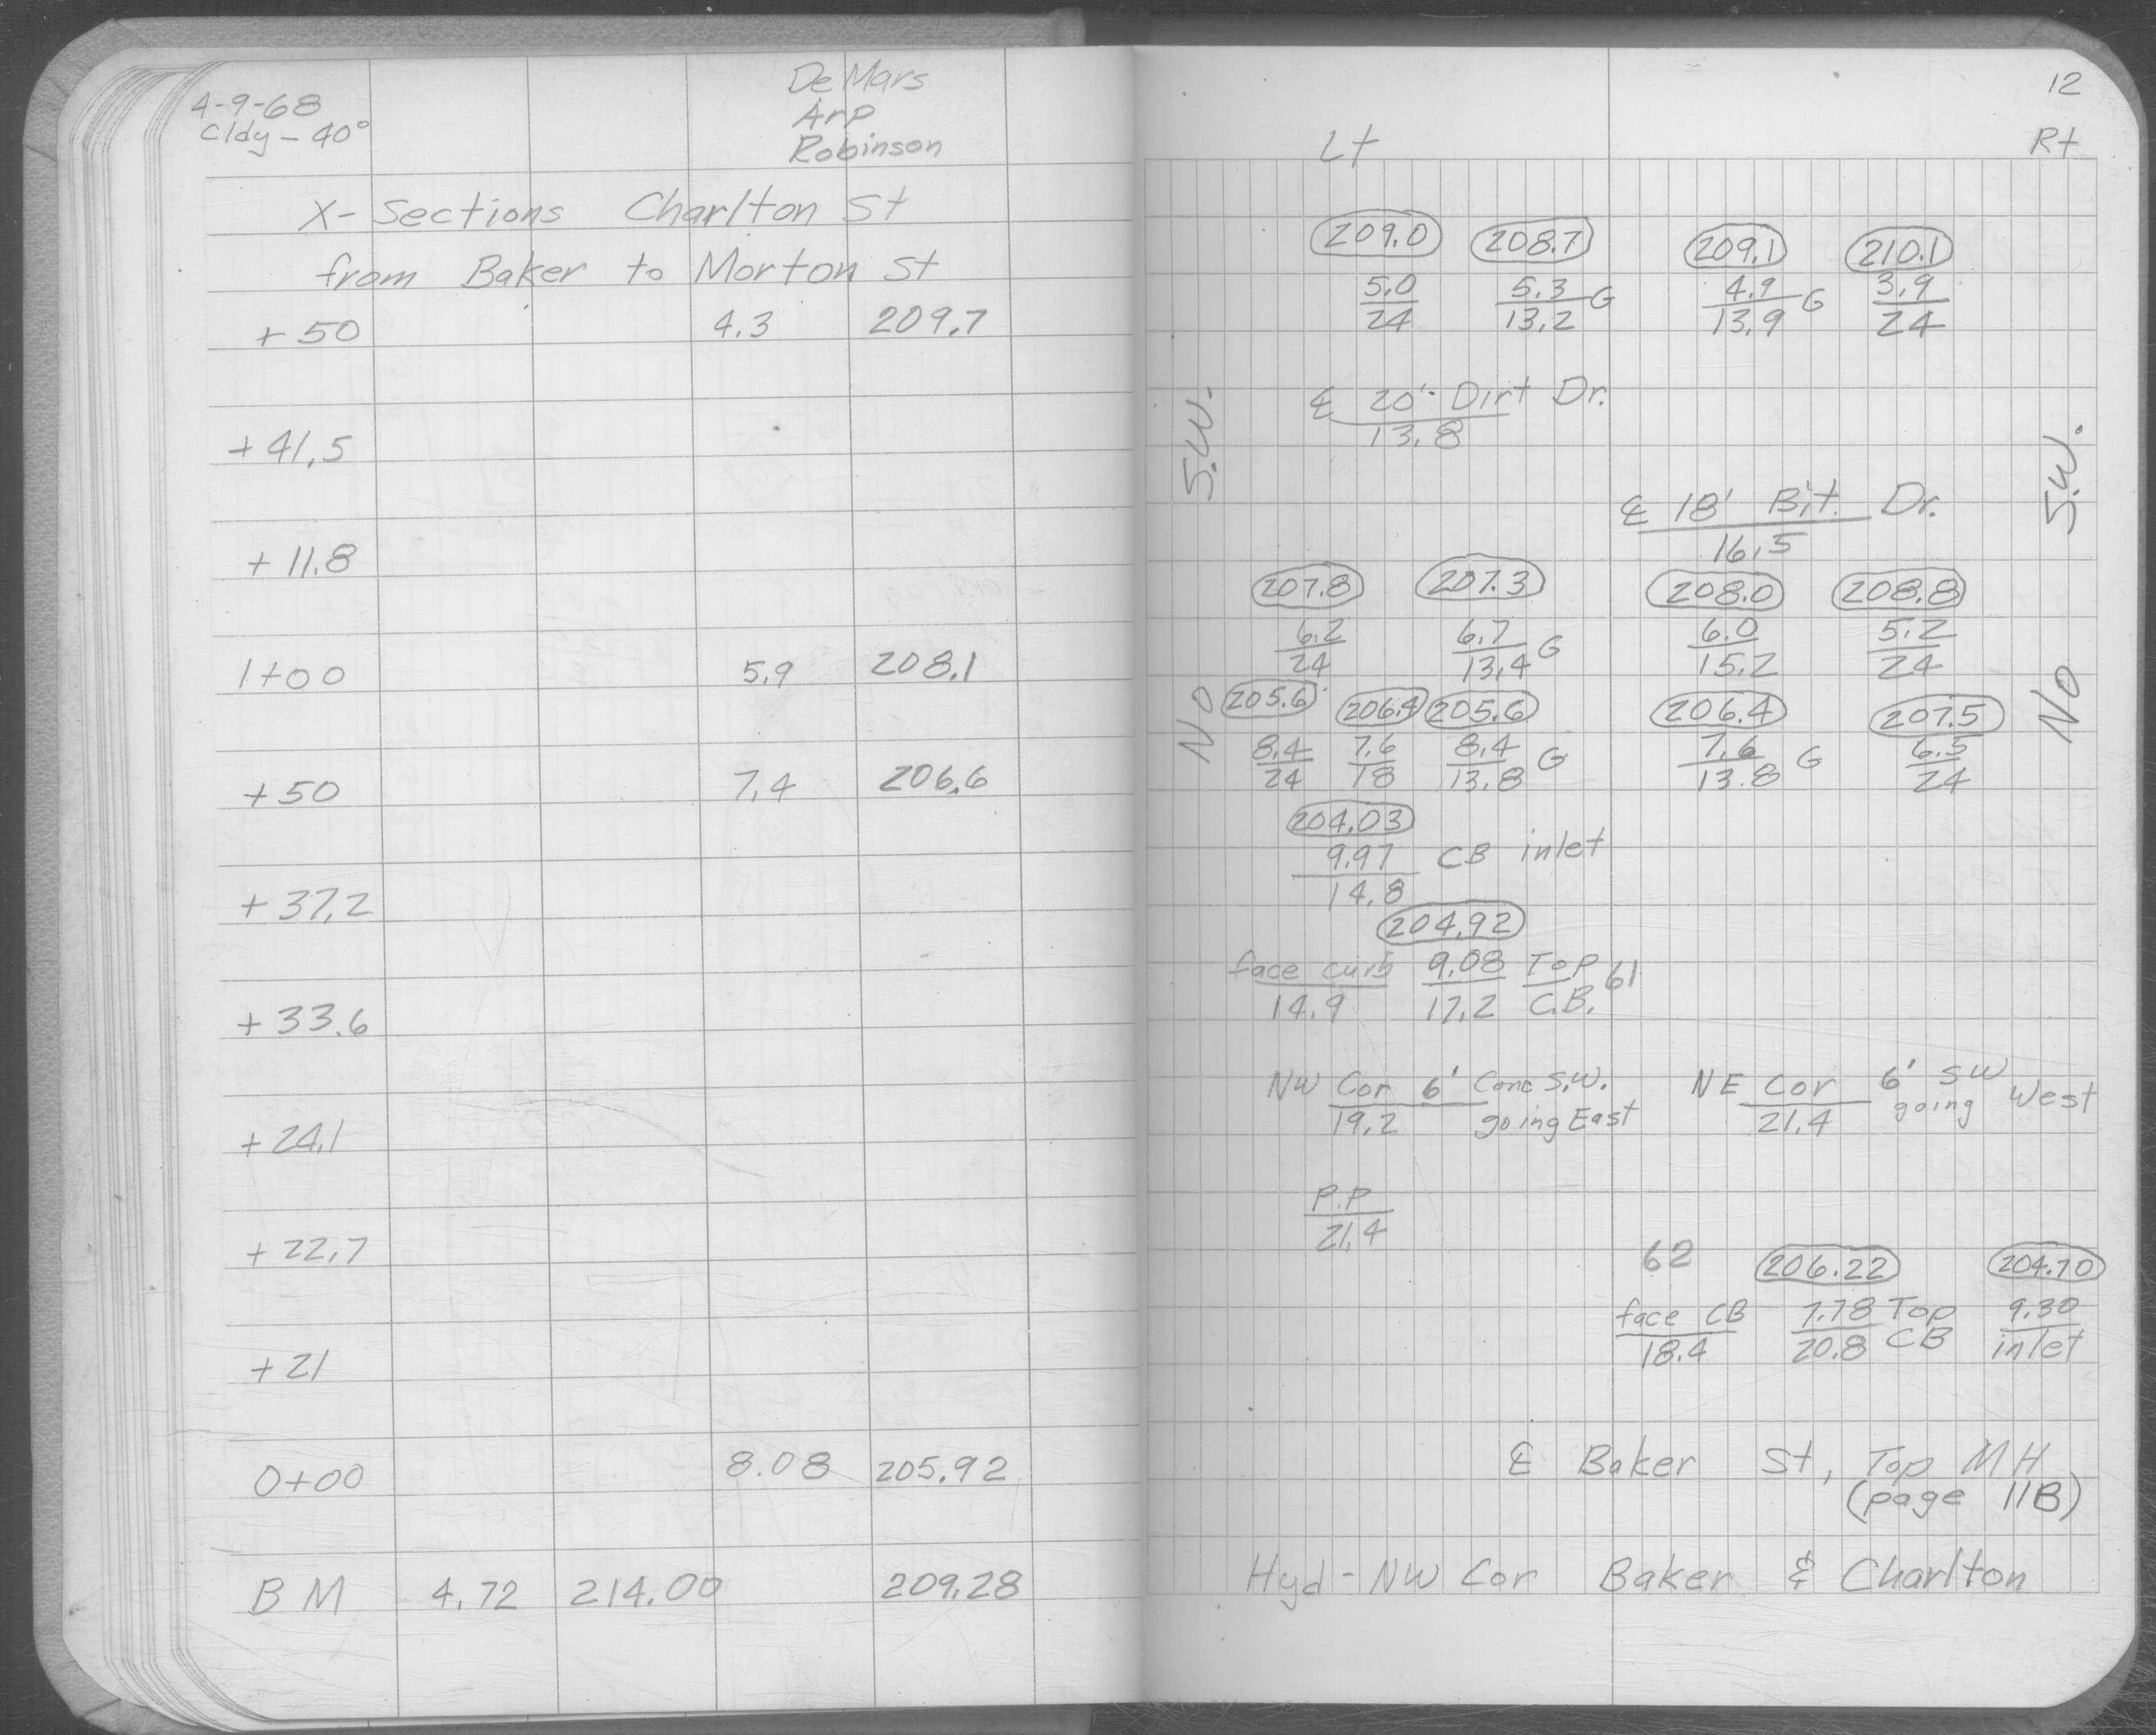 4-9-68
Cldy - 40°
DeMars
Arp
Robinson
X-Sections Charlton St
from Baker to Morton St
+50 4.3 209.7
+41.5
+11.8
1+00 5.9 208.1
+50 7.4 206.6
+37.2
+33.6
+24.1
+22.7
+21
0+00 8.08 205.92
BM 4.72 214.00 209.28
12
Lt Rt
209.0 208.7 209.1 210.1
5.0 5.3 G 4.9 G 3.9
24 13.2 13.9 24
℄ 20' Dirt Dr.
13.8
S.W.
S.W.
℄ 18' Bit. Dr.
16.5
207.8 207.3 208.0 208.8
6.2 6.7 G 6.0 5.2
24 13.4 15.2 24
No
No
205.6 206.4 205.6 206.4 207.5
8.4 7.6 8.4 G 7.6 G 6.5
24 18 13.8 13.8 24
204.03
9.97 CB inlet
14.8
204.92
face curb 9.08 Top 61
14.9 17.2 C.B.
NW Cor 6' Conc S.W. NE Cor 6' SW
19.2 going East 21.4 going West
P.P
21.4
62 206.22 204.70
face CB 7.78 Top 9.30
18.4 20.8 CB inlet
℄ Baker St, Top MH
(page 11B)
Hyd - NW Cor Baker & Charlton